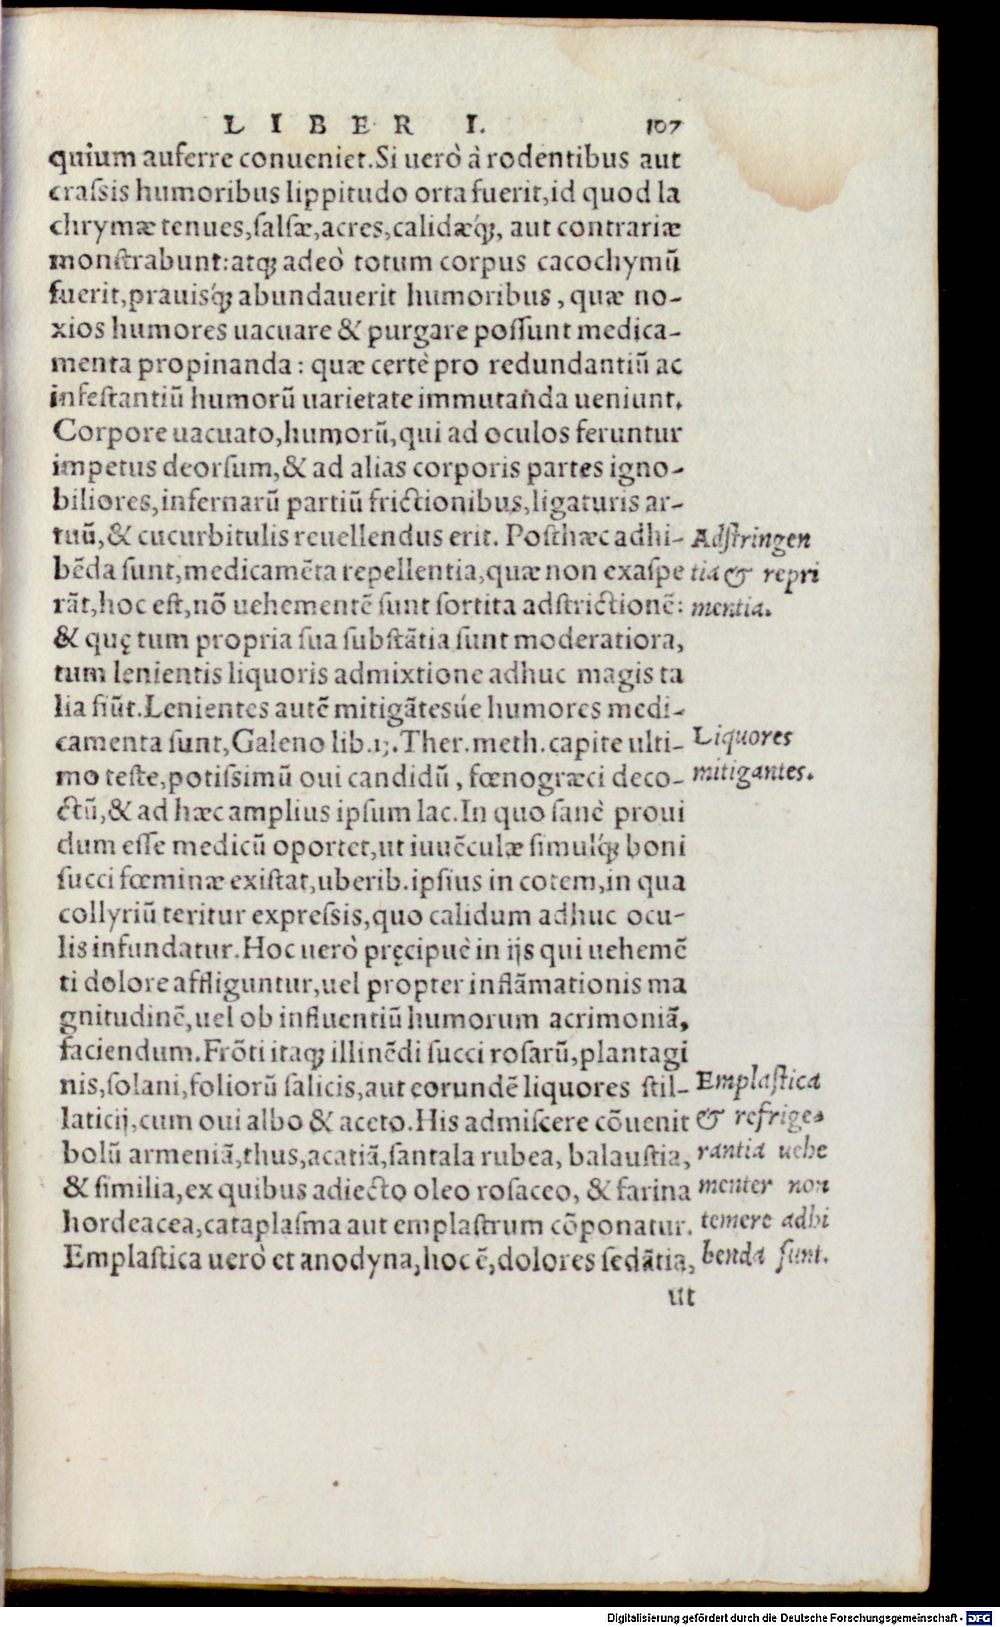 LIBER I. 107
quium auferre conueniet. Si uerò à rodentibus aut
craſsis humoribus lippitudo orta fuerit, id quod la
chrymæ tenues, ſalſæ, acres, calidæq́ꝫ, aut contrariæ
monſtrabunt: atqꝫ adeò totum corpus cacochymũ
fuerit, prauisq́ꝫ abundauerit humoribus, quæ no-
xios humores uacuare & purgare poſſunt medica-
menta propinanda: quæ certè pro redundantiũ ac
infeſtantiũ humorũ uarietate immutanda ueniunt.
Corpore uacuato, humorũ, qui ad oculos feruntur
impetus deorſum, & ad alias corporis partes igno-
biliores, infernarũ partiũ frictionibus, ligaturis ar-
tuũ, & cucurbitulis reuellendus erit. Poſthæc adhi-
bẽda ſunt, medicamẽta repellentia, quæ non exaſpe
rãt, hoc eſt, nõ uehementẽ ſunt ſortita adſtrictionẽ:
& quę tum propria ſua ſubſtãtia ſunt moderatiora,
tum lenientis liquoris admixtione adhuc magis ta
lia fiũt. Lenientes autẽ mitigãtesúe humores medi-
camenta ſunt, Galeno lib. 13. Ther. meth. capite ulti-
mo teſte, potiſsimũ oui candidũ, fœnogræci deco-
ctũ, & ad hæc amplius ipſum lac. In quo ſanè proui
dum eſſe medicũ oportet, ut iuuẽculæ ſimulq́ꝫ boni
ſucci fœminæ exiſtat, uberib. ipſius in cotem, in qua
collyriũ teritur expreſsis, quo calidum adhuc ocu-
lis infundatur. Hoc uerò pręcipuè in ijs qui uehemẽ
ti dolore affliguntur, uel propter inflãmationis ma
gnitudinẽ, uel ob influentiũ humorum acrimoniã,
faciendum. Frõti itaqꝫ illinẽdi ſucci roſarũ, plantagi
nis, ſolani, foliorũ ſalicis, aut eorundẽ liquores ſtil-
laticij, cum oui albo & aceto. His admiſcere cõuenit
bolũ armeniã, thus, acatiã, ſantala rubea, balauſtia,
& ſimilia, ex quibus adiecto oleo roſaceo, & farina
hordeacea, cataplaſma aut emplaſtrum cõponatur.
Emplaſtica uerò et anodyna, hoc ẽ, dolores ſedãtia,
ut
Adſtringen
tia & repri
mentia.
Liquores
mitigantes.
Emplaſtica
& refrige-
rantia uehe
menter non
temere adhi
benda ſunt.
Digitalisierung gefördert durch die Deutsche Forschungsgemeinschaft - DFG